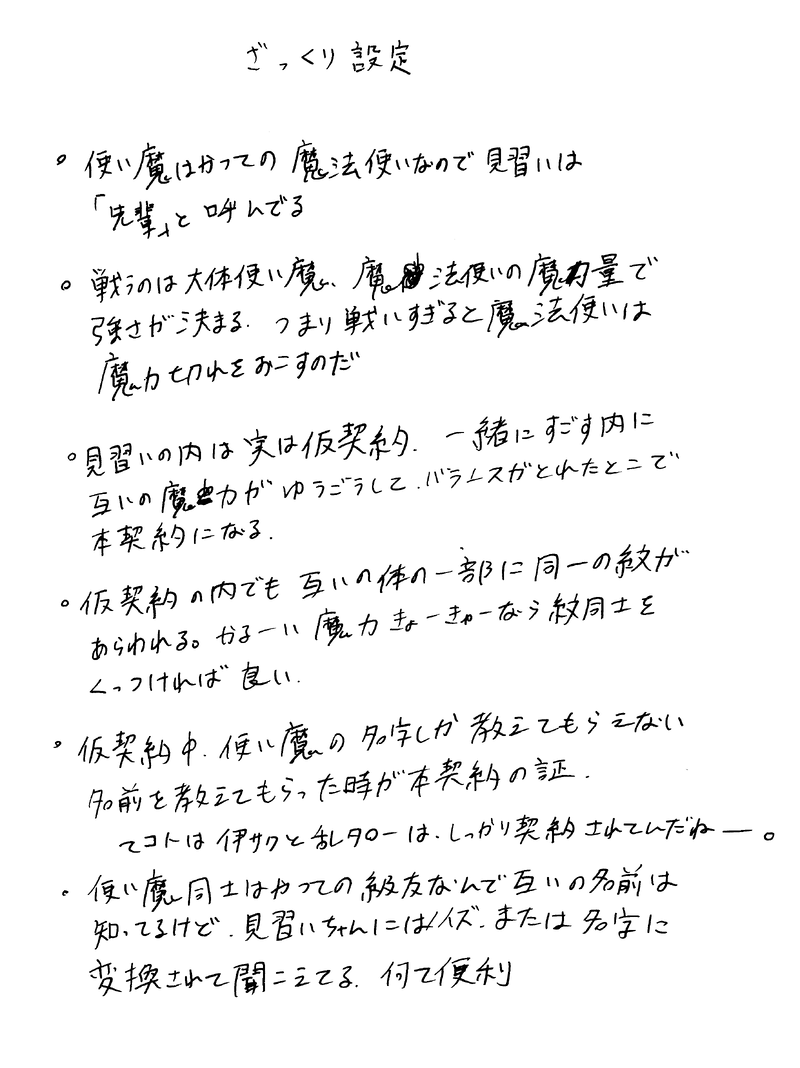 ざっくり設定
。使い魔はかつての魔法使いなので見習いは
「先輩」と呼んでる
。戦うのは大体使い魔、魔法使いの魔力量で
強さが決まる. つまり戦いすぎると魔法使いは
魔力切れをおこすのだ
。見習いの内は実は仮契約. 一緒にすごす内に
互いの魔力がゆうごうして、バランスがとれたとこで
本契約になる.
。仮契約の内でも互いの体の一部に同一の紋が
あらわれる。かるーい魔力きょーきゅーなら紋同士を
くっつければ良い.
。仮契約中、使い魔の名字しか教えてもらえない
名前を教えてもらった時が本契約の証.
てコトは伊サクと乱タローは、しっかり契約されてんだねー。
・使い魔同士はかつての級友なんで互いの名前は
知ってるけど、見習いちゃんにはノイズ、または名字に
変換されて聞こえてる. 何て便利